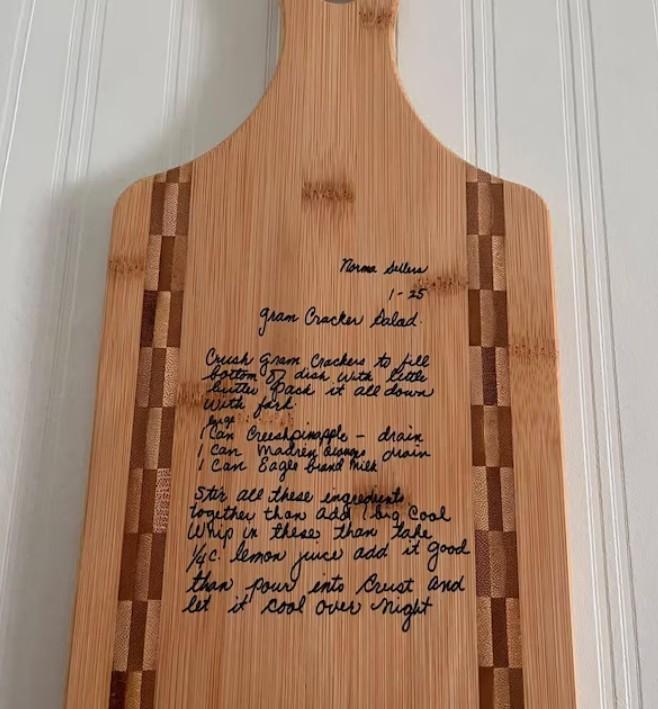 Norma Sellers
1-25
gram Cracker Salad.
Crush gram Crackers to fill
bottom of dish with little
butter pack it all down
with fork
large
1 Can Creeshpinapple - drain
1 can Madren Oranges drain
1 Can Eagle brand Milk
Stir all these ingredients
together than add 1 big Cool
Whip in these than take
1/4 c. lemon juice add it good
than pour into Crust and
let it cool over night